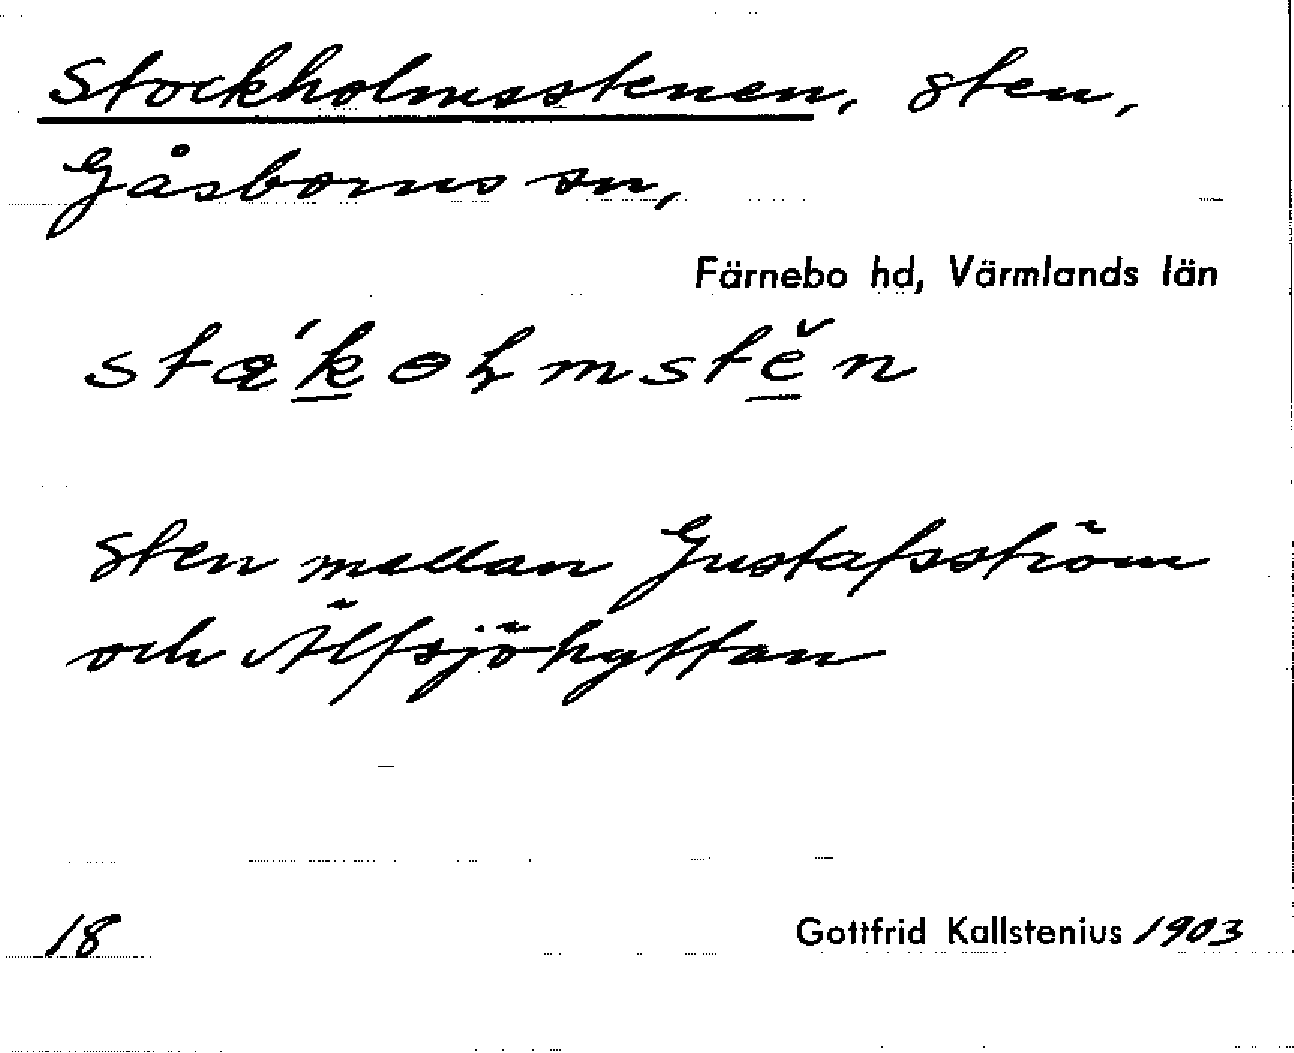 Stockholmsstenen, sten,
Gåsborns sn,
Färnebo hd, Värmlands län
sten mellan Gustafsström
och Älfsjöhyttan
18
Gottfrid Kallstenius 1903